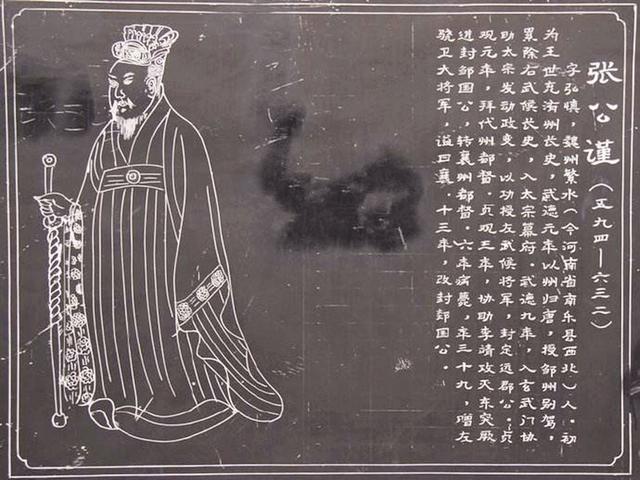 张公谨（五九四－六三二）
字弘慎，魏州繁水（今河南省南乐县西北）人。初
为王世充洧州长史，武德元年以州归唐，授邹州别驾，
累除右武候长史，入太宗幕府，武德九年，入玄武门协
助太宗发动政变，以功授左武候将军，封定远郡公，贞
观元年，拜代州都督。贞观三年，协助李靖攻灭东突厥
进封邹国公，转襄州都督。六年病薨，年三十九，赠左
骁卫大将军，谥曰襄。十三年，改封郯国公。